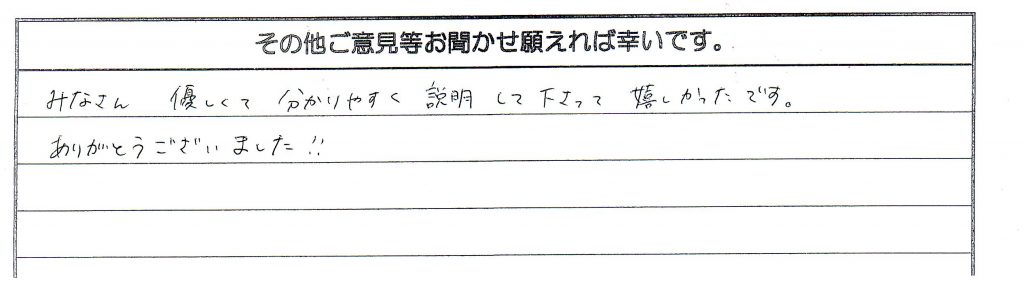 その他ご意見等お聞かせ願えれば幸いです。
みなさん 優しくて 分かりやすく 説明 して 下さって 嬉しかったです。
ありがとうございました!!